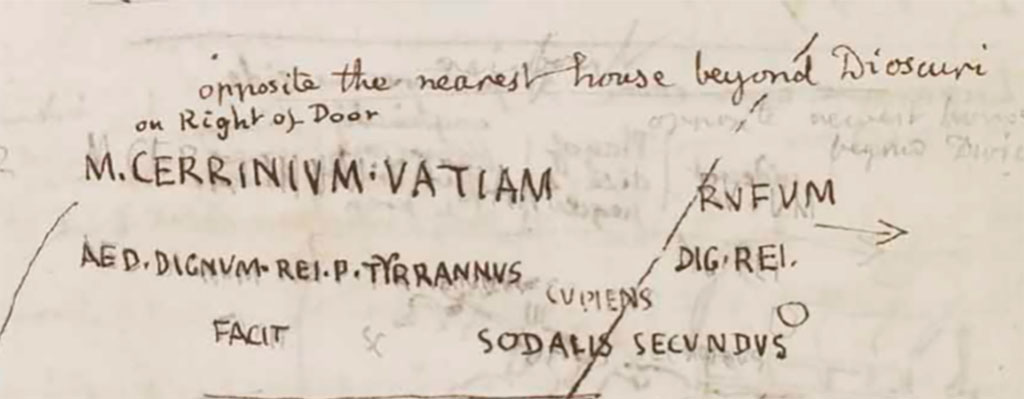 opposite the nearest house beyond Dioscuri
on Right of Door
M. CERRINIVM · VATIAM RVFUM
AED. DIGNVM. REI. P. TYRRANNVS DIG. REI.
CUPIENS
FACIT SODALIS SECVNDVS